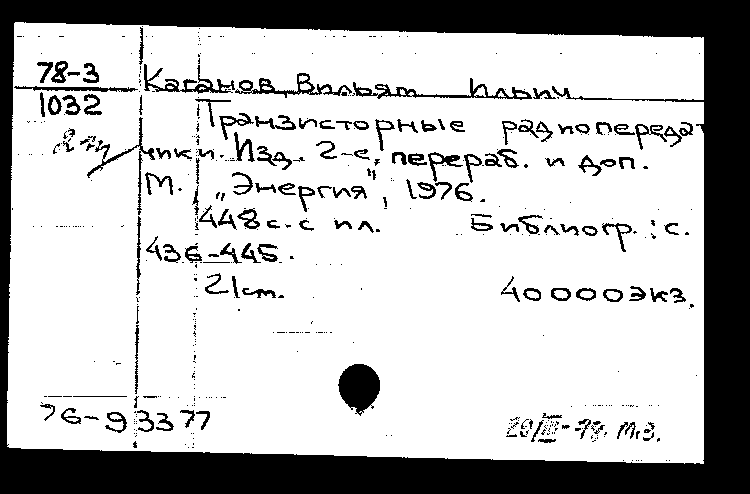 78-3 Каганов, Вильям Ильич.
1032 Транзисторные радиопередат
2 чики. Изд. 2-е, перераб. и доп.
М., „Энергия", 1976.
448 с. с ил. Библиогр.: с.
436-445.
21 см. 40000 экз.
76-93377
29/III-78. М.З.